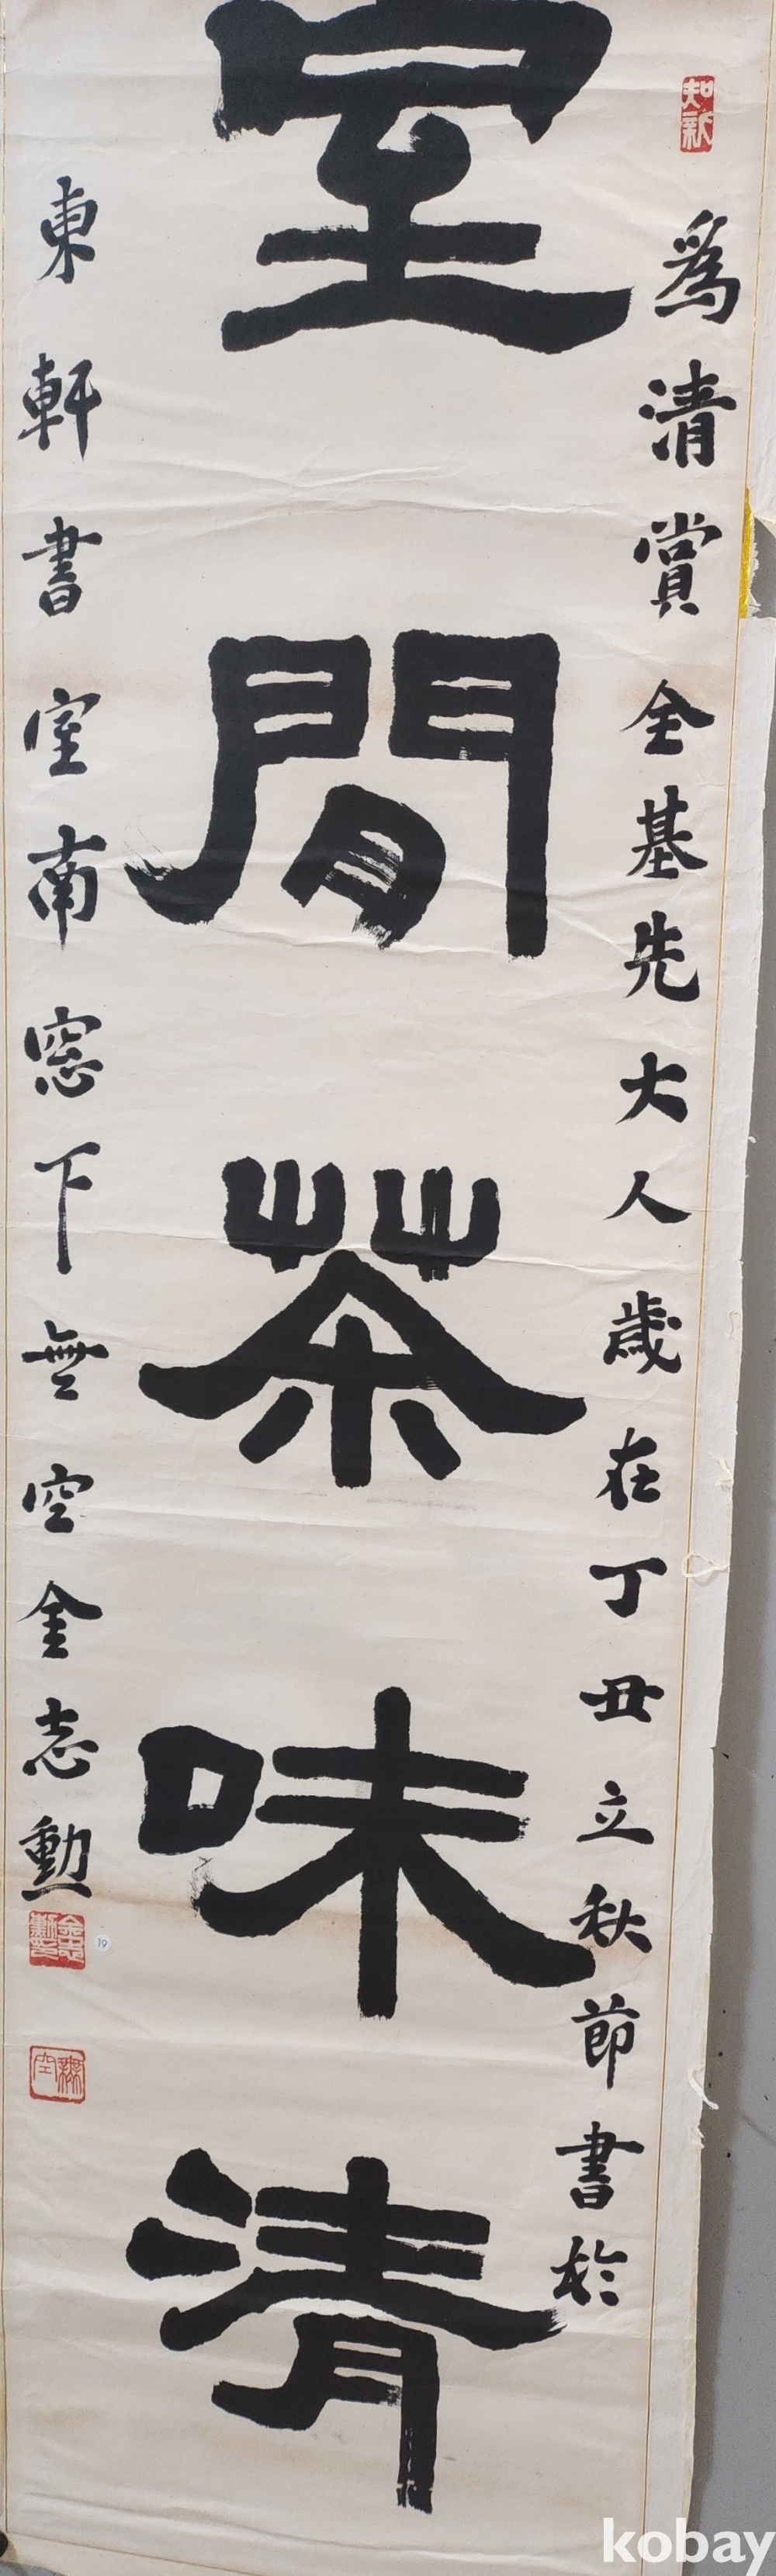 知新
爲清賞全基先大人歲在丁丑立秋節書於
室閒茶味清
東軒書室南窓下無空金志勳
金志勳印
無空
19
kobay